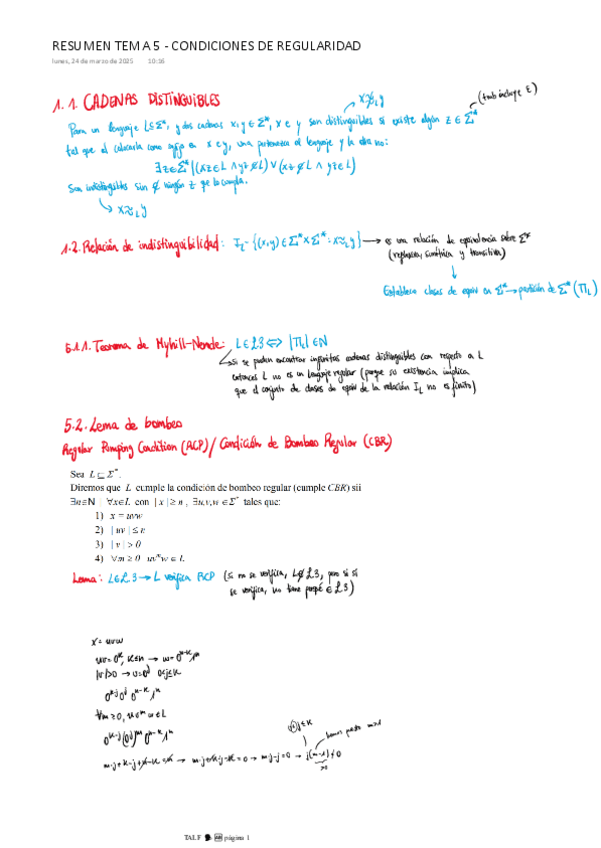 RESUMEN TEMA 5 - CONDICIONES DE REGULARIDAD
lunes, 24 de marzo de 2025 10:16
1.1. CADENAS DISTINGUIBLES
x≉_L y
(tmb incluye ε)
Para un lenguaje L⊆Σ*, y dos cadenas x,y∈Σ*, x e y son distinguibles si existe algún z∈Σ*
tal que al colocarla como sufijo en x e y, una pertenezca al lenguaje y la otra no:
∃z∈Σ*|(xz∈L ∧ yz∉L) ∨ (xz∉L ∧ yz∈L)
Son indistinguibles si ∄ ningún z que lo cumpla.
x≈_L y
1.2. Relación de indistinguibilidad: I_L = {(x,y)∈Σ*×Σ*: x≈_L y} → es una relación de equivalencia sobre Σ*
(reflexiva, simétrica y transitiva)
Establece clases de equiv en Σ* → partición de Σ* (Π_L)
5.1.1. Teorema de Myhill-Nerode: L∈ℒ3 ⇔ |Π_L|∈ℕ
Si se pueden encontrar infinitas cadenas distinguibles con respecto a L
entonces L no es un lenguaje regular (porque su existencia implica
que el conjunto de clases de equiv de la relación I_L no es finito)
5.2. Lema de bombeo
Regular Pumping Condition (RCP)/Condición de Bombeo Regular (CBR)
Sea L ⊆ Σ*.
Diremos que L cumple la condición de bombeo regular (cumple CBR) sii
∃n∈N | ∀x∈L con |x| ≥ n, ∃u,v,w ∈ Σ* tales que:
1) x = uvw
2) |uv| ≤ n
3) |v| > 0
4) ∀m ≥ 0 uvᵐw ∈ L
Lema: L∈ℒ3 → L verifica RCP (si no se verifica, L∉ℒ3, pero si sí
se verifica, no tiene porqué ∈ℒ3)
x = uvw
|v|>0 → v=0ʲ 0<j≤k
∀m≥0, uvᵐw∈L
TALF página 1